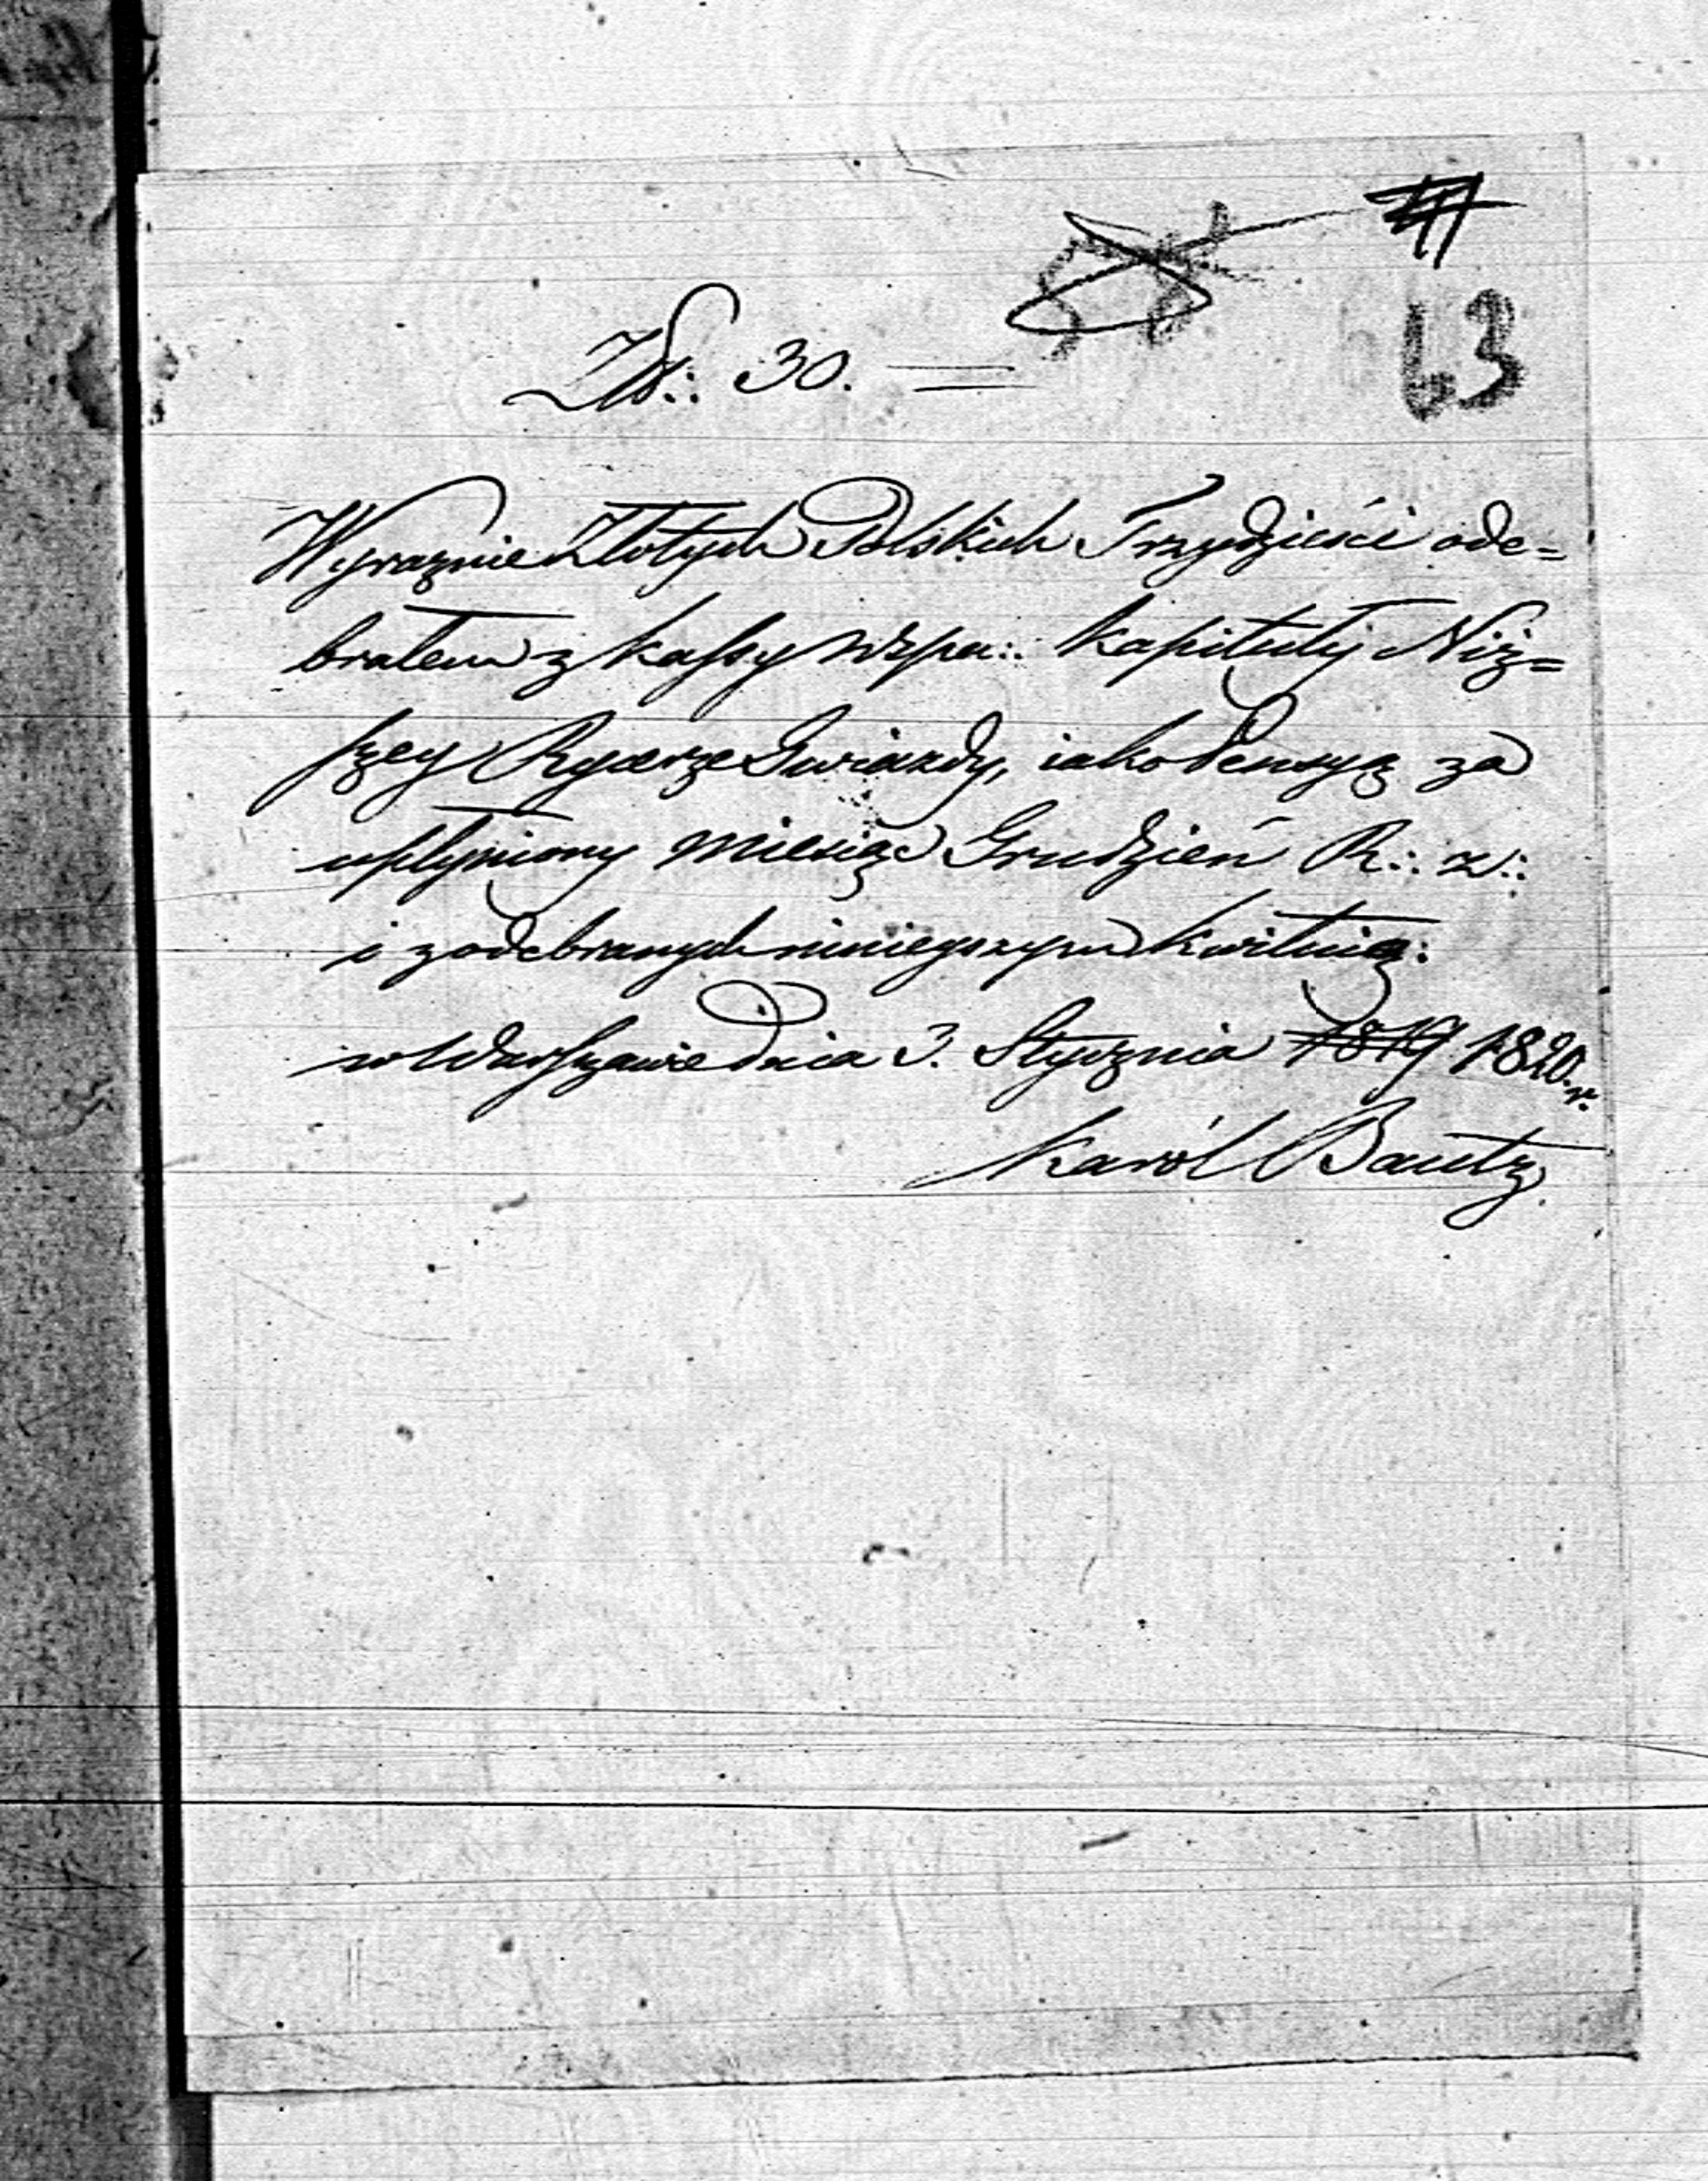 63
Zł∴ 30. ═
Wyraznie Złotych Polskich Trzydzieści ode=
brałem z kassy Wspa∴ Kapituły Niż=
szey Rycerze Gwiazdy, iako Pensyą za
upłyniony Miesiąc Grudzień R∴ z∴
i z odebranych ninieyszym kwituię:
w Warszawie dnia 3. Stycznia 1819 1820. r.
Karól Bautz.